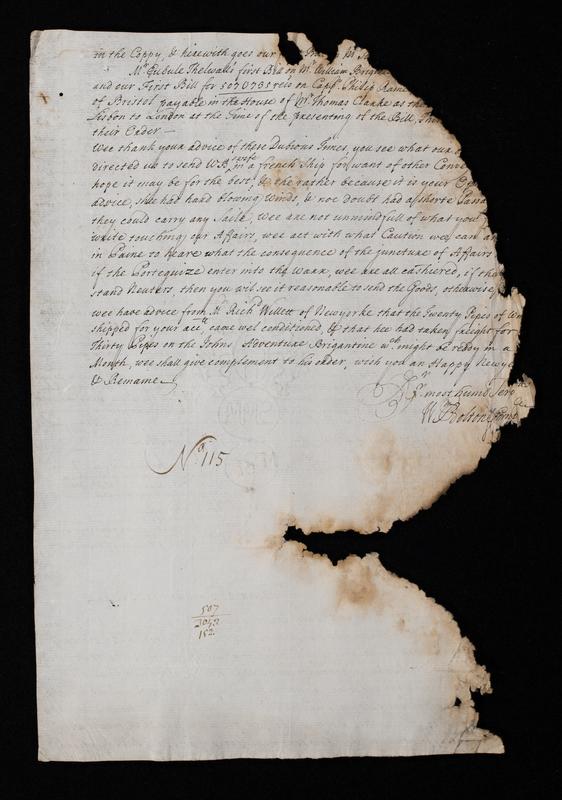 in the Coppy, & herewith goes our
Mr Eubule Thelwalls first Bill on Mr William
and our First Bill for 5070731 reis on Capt. Philip
of Bristol payable in the House of Mr Thomas Clarke as the
Lisbon to London at the time of the presenting of the Bill,
their Order —
Wee thank your advice of these Dubious times, you see what our
directed us to send WB wife in a french Ship for want of other
hope it may be for the best, & the rather because it is your
advice, shee has had blowing winds, & noe doubt had a shorte
they could carry any Saile, wee are not unmindfull of what you
write touching our Affairs, wee act with what Caution wee can
in Paine to heare what the consequence of the juncture of Affairs
if the Porteguize enter into the Warr, wee are all cashered, if they
stand Neuters, then you wil see it reasonable to send the Goods, otherwise
wee have advice from Mr Richd Willett of Newyorke that the Twenty Pipes of
shipped for your acct came wel conditioned, & that hee had taken freight for
Thirty Pipes on the Johns Adventure Brigantine wch might be ready in a
Month, wee shall give complement to his order, wish you an Happy
& Remaine
Sr yr most humb
Wm Bolton
No 115
507
2043
152